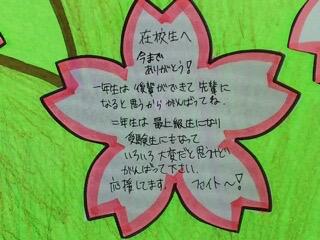 在校生へ
今まで
ありがとう!
一年生は後輩ができて先輩に
なると思うからがんばってね。
二年生は最上級生になり
受験生にもなって
いろいろ大変だと思うけど
がんばって下さい。
応援してます。ファイト〜!